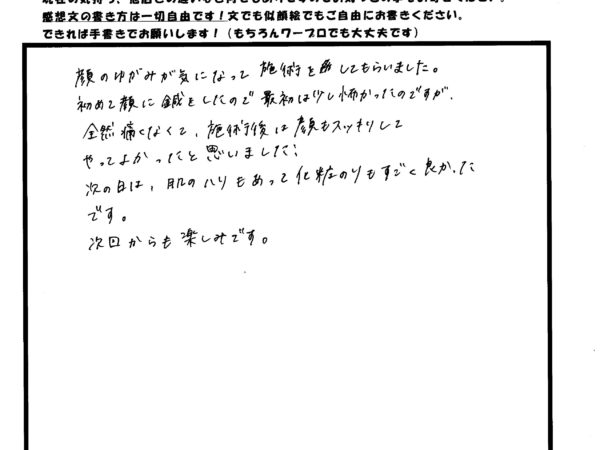 感想文の書き方は一切自由です!文でも似顔絵でもご自由にお書きください。
できれば手書きでお願いします!(もちろんワープロでも大丈夫です)
顔のゆがみが気になって 施術を してもらいました。
初めて顔に鍼をしたので 最初は少し怖かったのですが、
全然痛くなくて、施術後は顔もスッキリして
やってよかったと思いました!
次の日は、肌のハリもあって化粧のりもすごく良かった
です。
次回からも楽しみです。